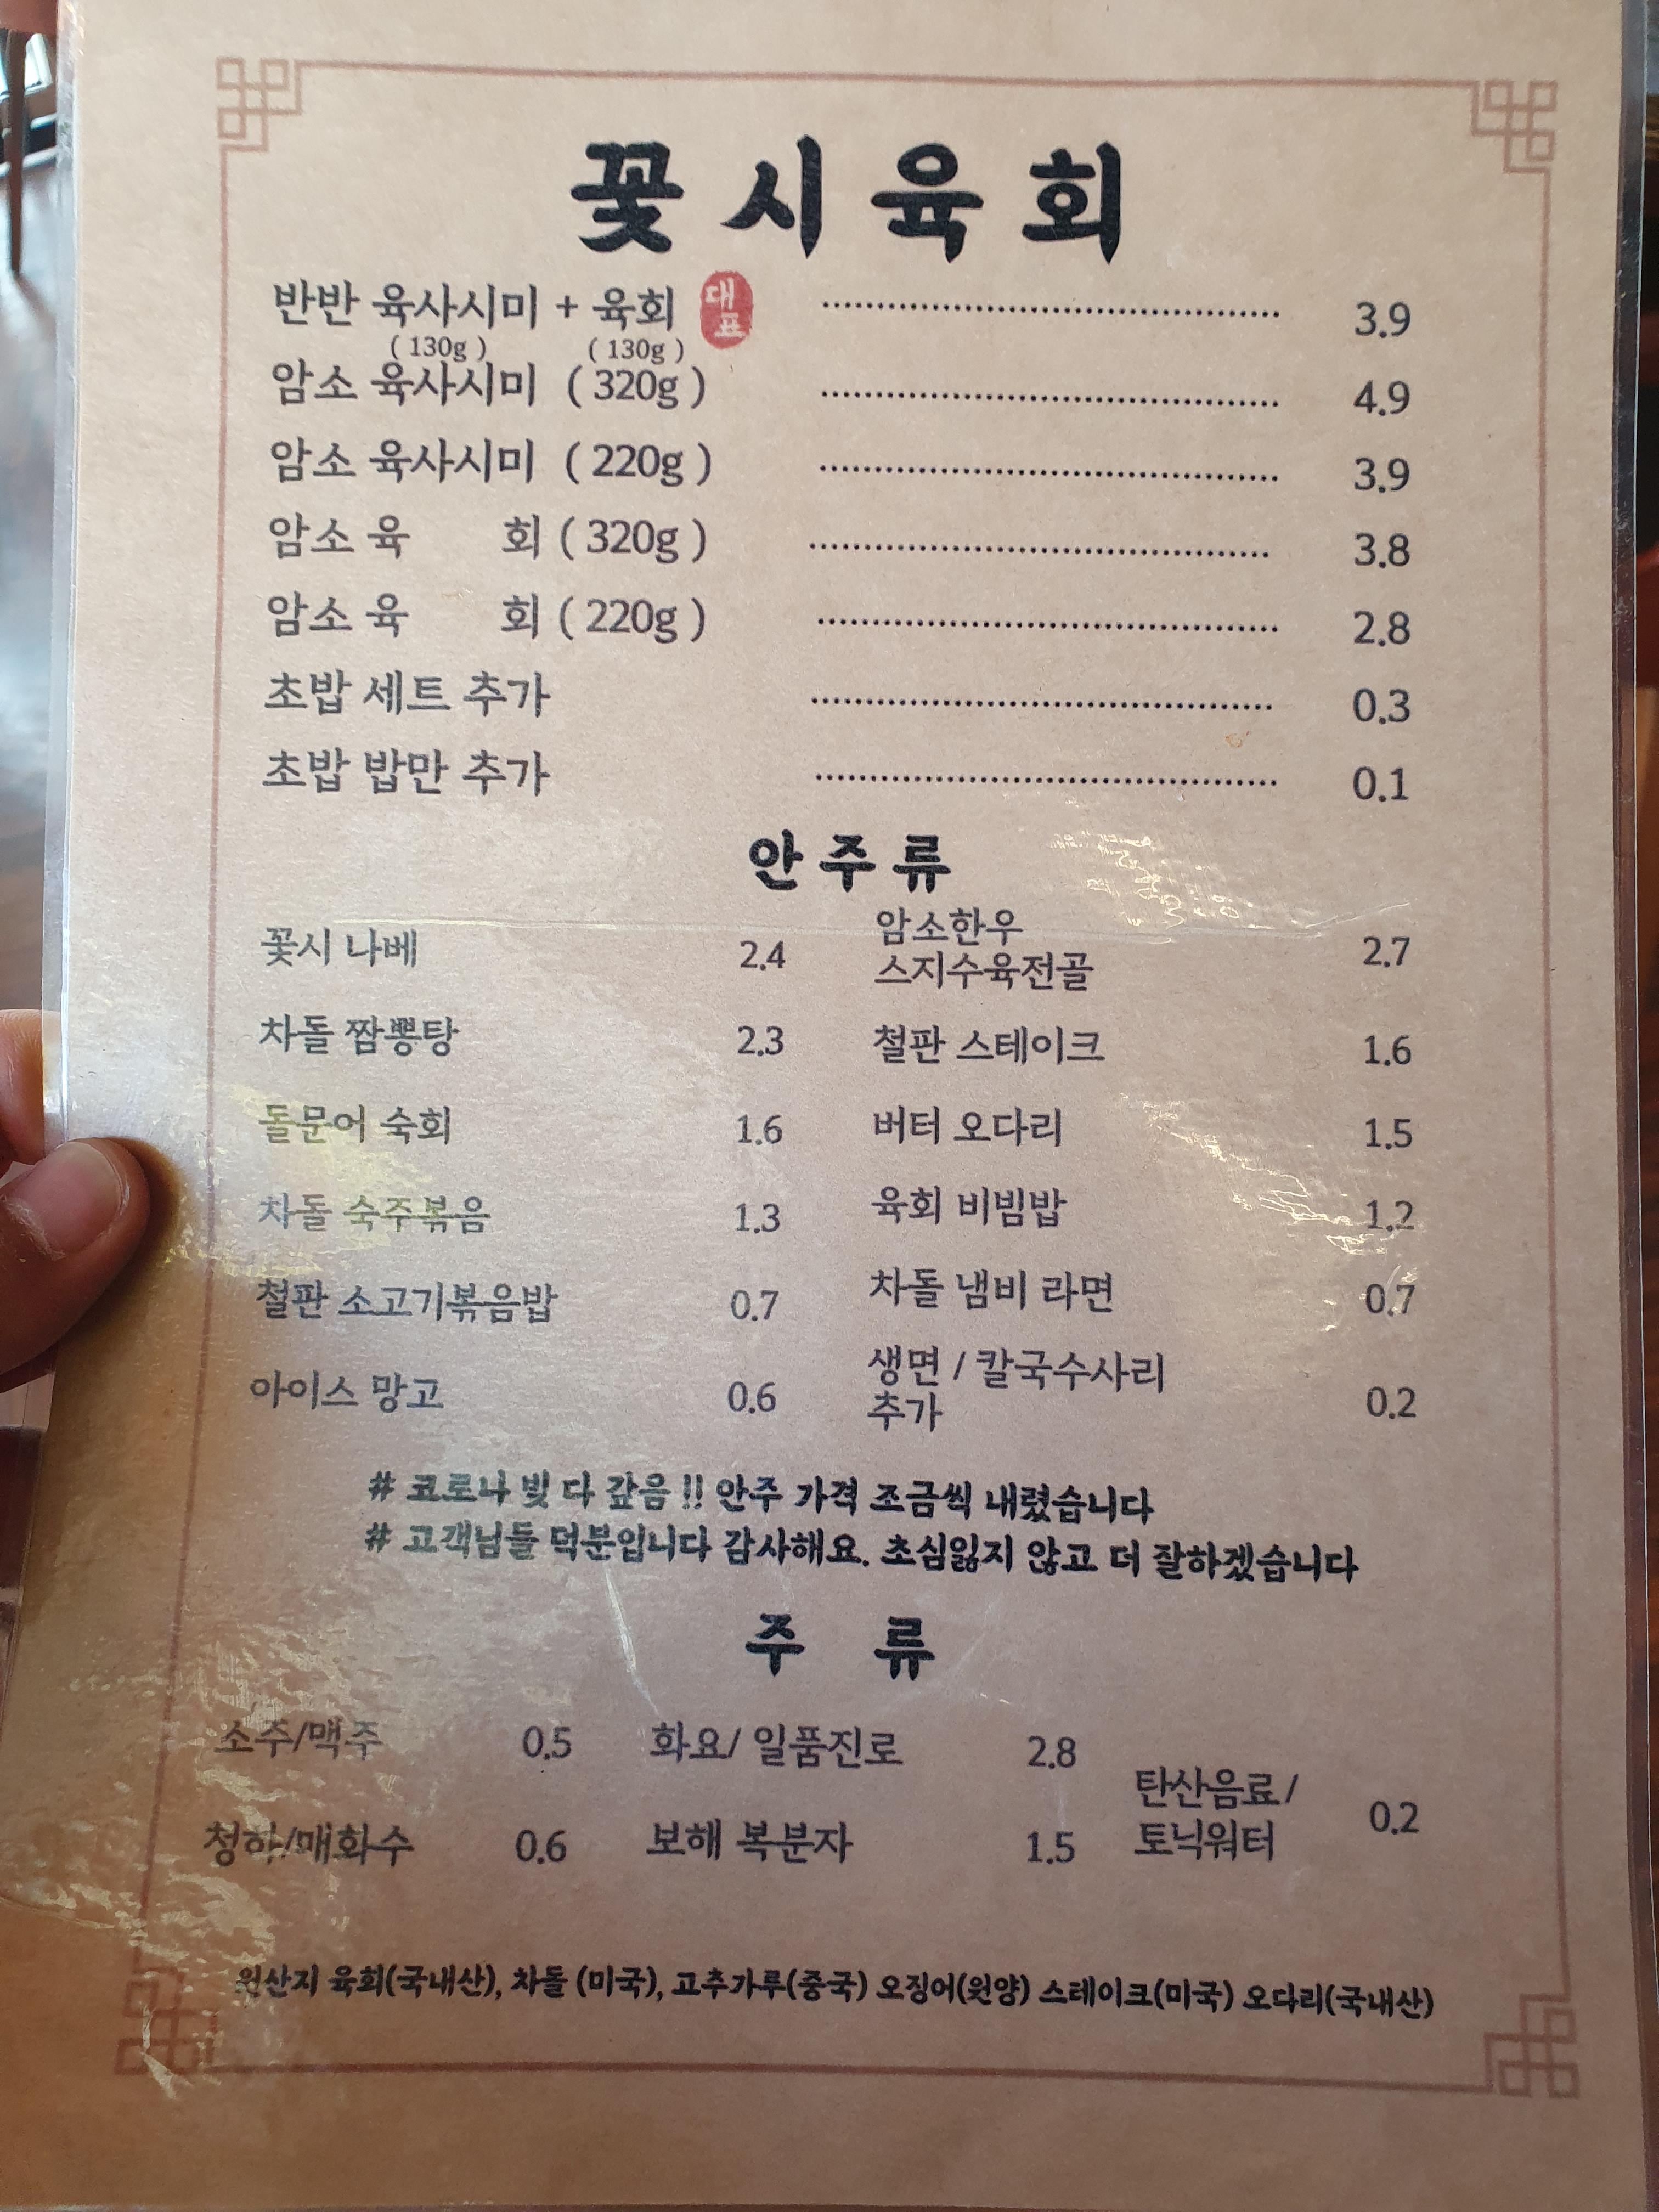 꽃시육회
반반 육사시미 + 육회 대표 3.9
(130g) (130g)
암소 육사시미 (320g) 4.9
암소 육사시미 (220g) 3.9
암소 육 회 (320g) 3.8
암소 육 회 (220g) 2.8
초밥 세트 추가 0.3
초밥 밥만 추가 0.1
안주류
꽃시 나베 2.4
암소한우
스지수육전골 2.7
차돌 짬뽕탕 2.3
철판 스테이크 1.6
돌문어 숙회 1.6
버터 오다리 1.5
차돌 숙주볶음 1.3
육회 비빔밥 1.2
철판 소고기볶음밥 0.7
차돌 냄비 라면 0.7
아이스 망고 0.6
생면 / 칼국수사리
추가 0.2
# 코로나 빚 다 갚음 !! 안주 가격 조금씩 내렸습니다
# 고객님들 덕분입니다 감사해요. 초심잃지 않고 더 잘하겠습니다
주 류
소주/맥주 0.5
화요/ 일품진로 2.8
청하/매화수 0.6
보해 복분자 1.5
탄산음료 /
토닉워터 0.2
원산지 육회(국내산), 차돌 (미국), 고추가루(중국) 오징어(원양) 스테이크(미국) 오다리(국내산)